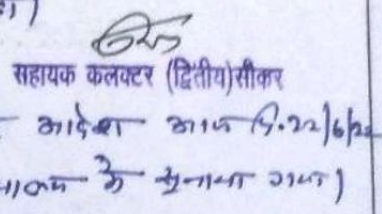 सहायक कलक्टर (द्वितीय)सीकर
आदेश आज दि. 22/6/22
के सुनाया गया।